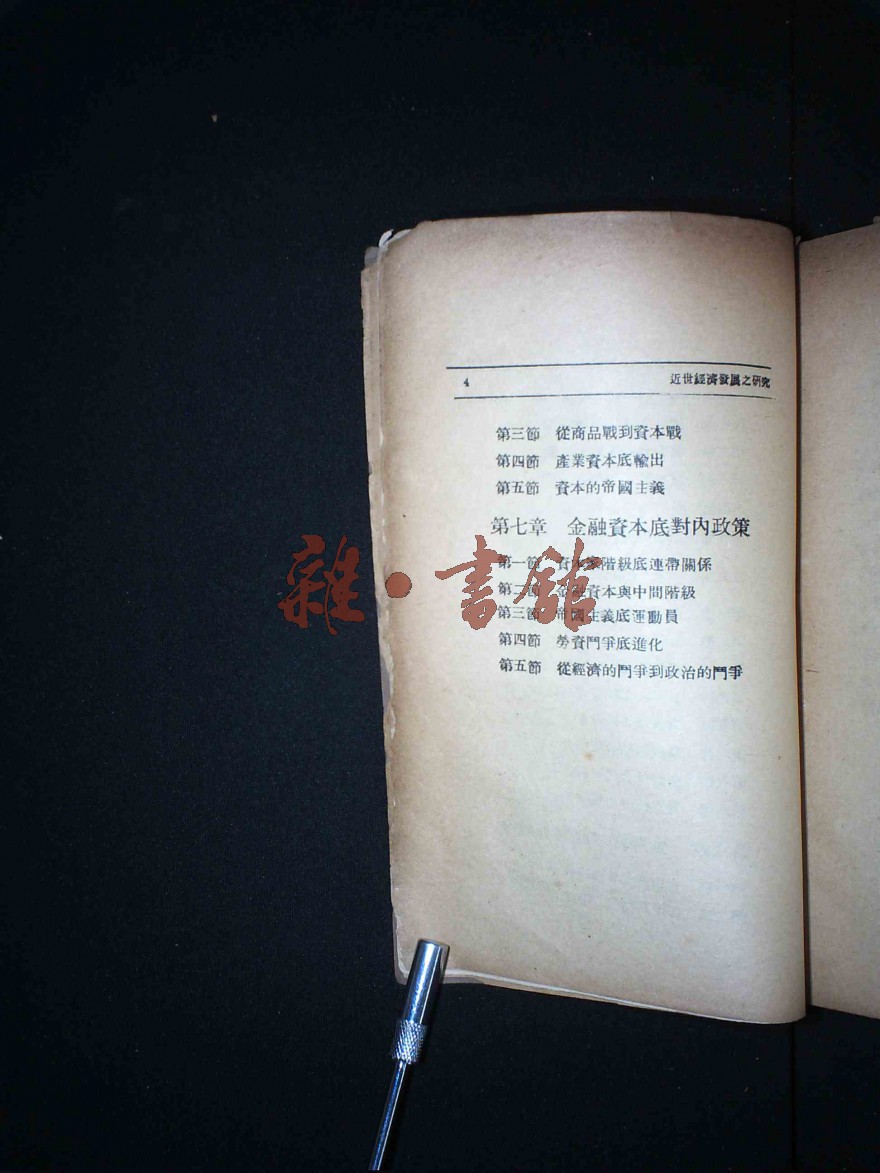 4 近世經濟發展之研究
第三節 從商品戰到資本戰
第四節 產業資本底輸出
第五節 資本的帝國主義
第七章 金融資本底對內政策
第一節 資本家階級底連帶關係
第二節 金融資本與中間階級
第三節 帝國主義底運動員
第四節 勞資鬥爭底進化
第五節 從經濟的鬥爭到政治的鬥爭
雜·書館